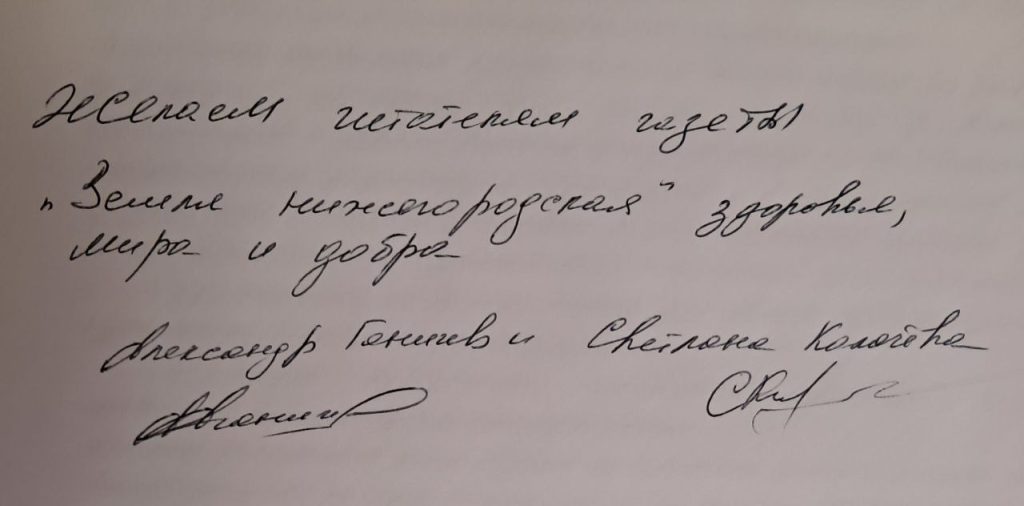 Желаем читателям газеты
"Земля нижегородская" здоровья,
мира и добра
Александр и Светлана